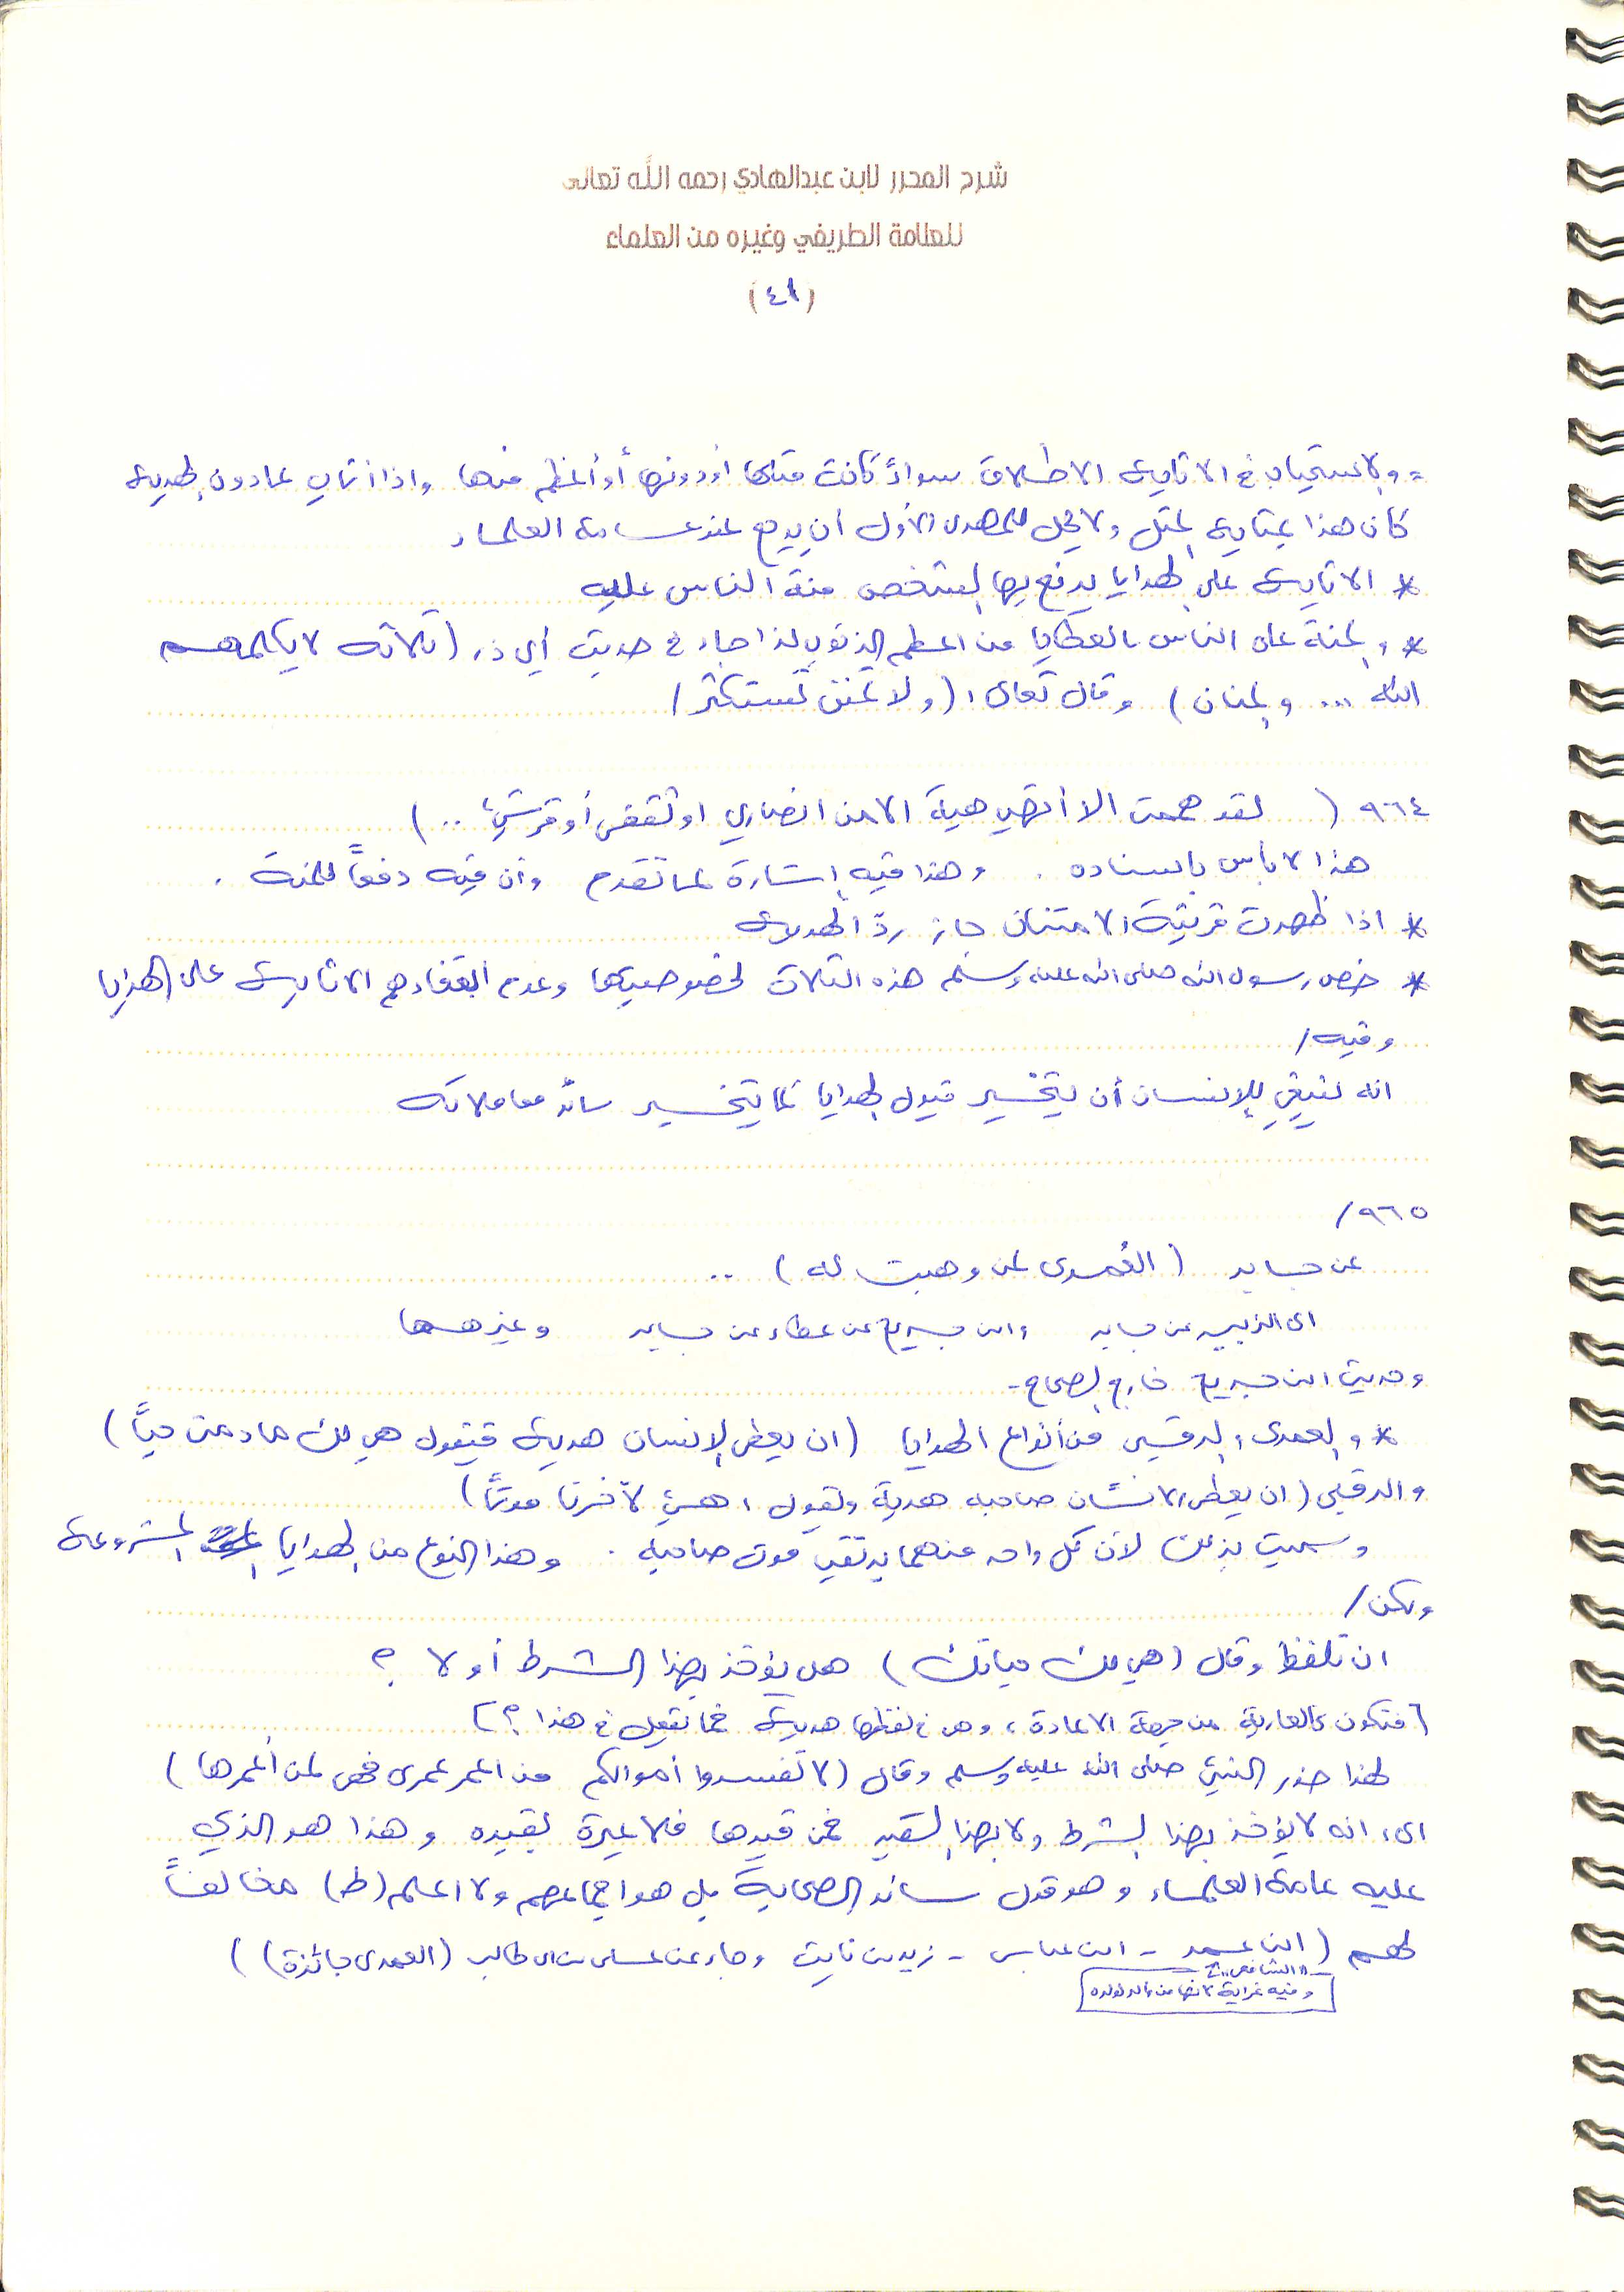 شرح المحرر لابن عبدالهادي رحمه الله تعالى
للعلامة الطريفي وغيره من العلماء
(٤١)
= والاستحباب في الاثابة الاطلاق سواءً كانت مثلها أو دونها أو أعظم منها واذا أثاب بما دون الهدية
كان هذا بمثابة المثل ولا يحل للمهدي الأول أن يرجع عند عامة العلماء
* الاثابة على الهدايا يدفع بها الشخص منة الناس عليه
* والمنة على الناس بالعطايا من اعظم الذنوب لذا جاء في حديث أبي ذر (ثلاثة لا يكلمهم
الله ... والمنان) وقال تعالى: (ولا تمنن تستكثر)
٩٦٤ ( لقد هممت الا أتهب هبة الا من انصاري او ثقفي أو قرشي ..)
هذا لا بأس باسناده . وهذا فيه إشارة لما تقدم وأن فيه دفعاً للمنة .
* اذا ظهرت قرينة الامتنان جاز ردّ الهدية
* خص رسول الله صلى الله عليه وسلم هذه الثلاث لخصوصيتها وعدم ابتغاءهم الاثابة على الهدايا
وفيه/
انه ينبغي للإنسان أن يتخير قبول الهدايا كما يتخير سائر معاملاته
٩٦٥/
عن جابر (العُمرى لمن وهبت له) ..
ابي الزبير عن جابر وابن جريج عن عطاء عن جابر وغيرهما
وحديث ابن جريج خارج الصحاح -
* والعمرى والرقبى من أنواع الهدايا (ان يعطى الإنسان هدية فيقول هي لك ما دمت حياً)
والرقبى (ان يعطى الانسان صاحبه هدية ويقول: هي لآخرنا موتاً)
وسميت بذلك لأن كل واحد منهما يرتقب موت صاحبه . وهذا النوع من الهدايا المشروعة
ولكن/
ان تلفظ وقال (هي لك حياتك) هل يؤخذ بهذا الشرط أو لا ؟
[فتكون كالعارية من جهة الاعادة، وهي في لفظها هدية فما نفعل في هذا ؟]
لهذا حذر النبي صلى الله عليه وسلم وقال (لا تفسدوا أموالكم من اعمر عمرى فهي لمن أعمرها)
اي: انه لا يؤخذ بهذا الشرط ولا بهذا القيد فمن قيدها فلا عبرة بقيده وهذا هو الذي
عليه عامة العلماء وهو قول سائر الصحابة بل هو اجماعهم ولا اعلم (ط) مخالفاً
لهم (ابن عمر - ابن عباس - زيد بن ثابت وجاء عن علي بن ابي طالب (العمرى جائزة))
"الشافعي"
وفيه غرابة لانها من والد لولده